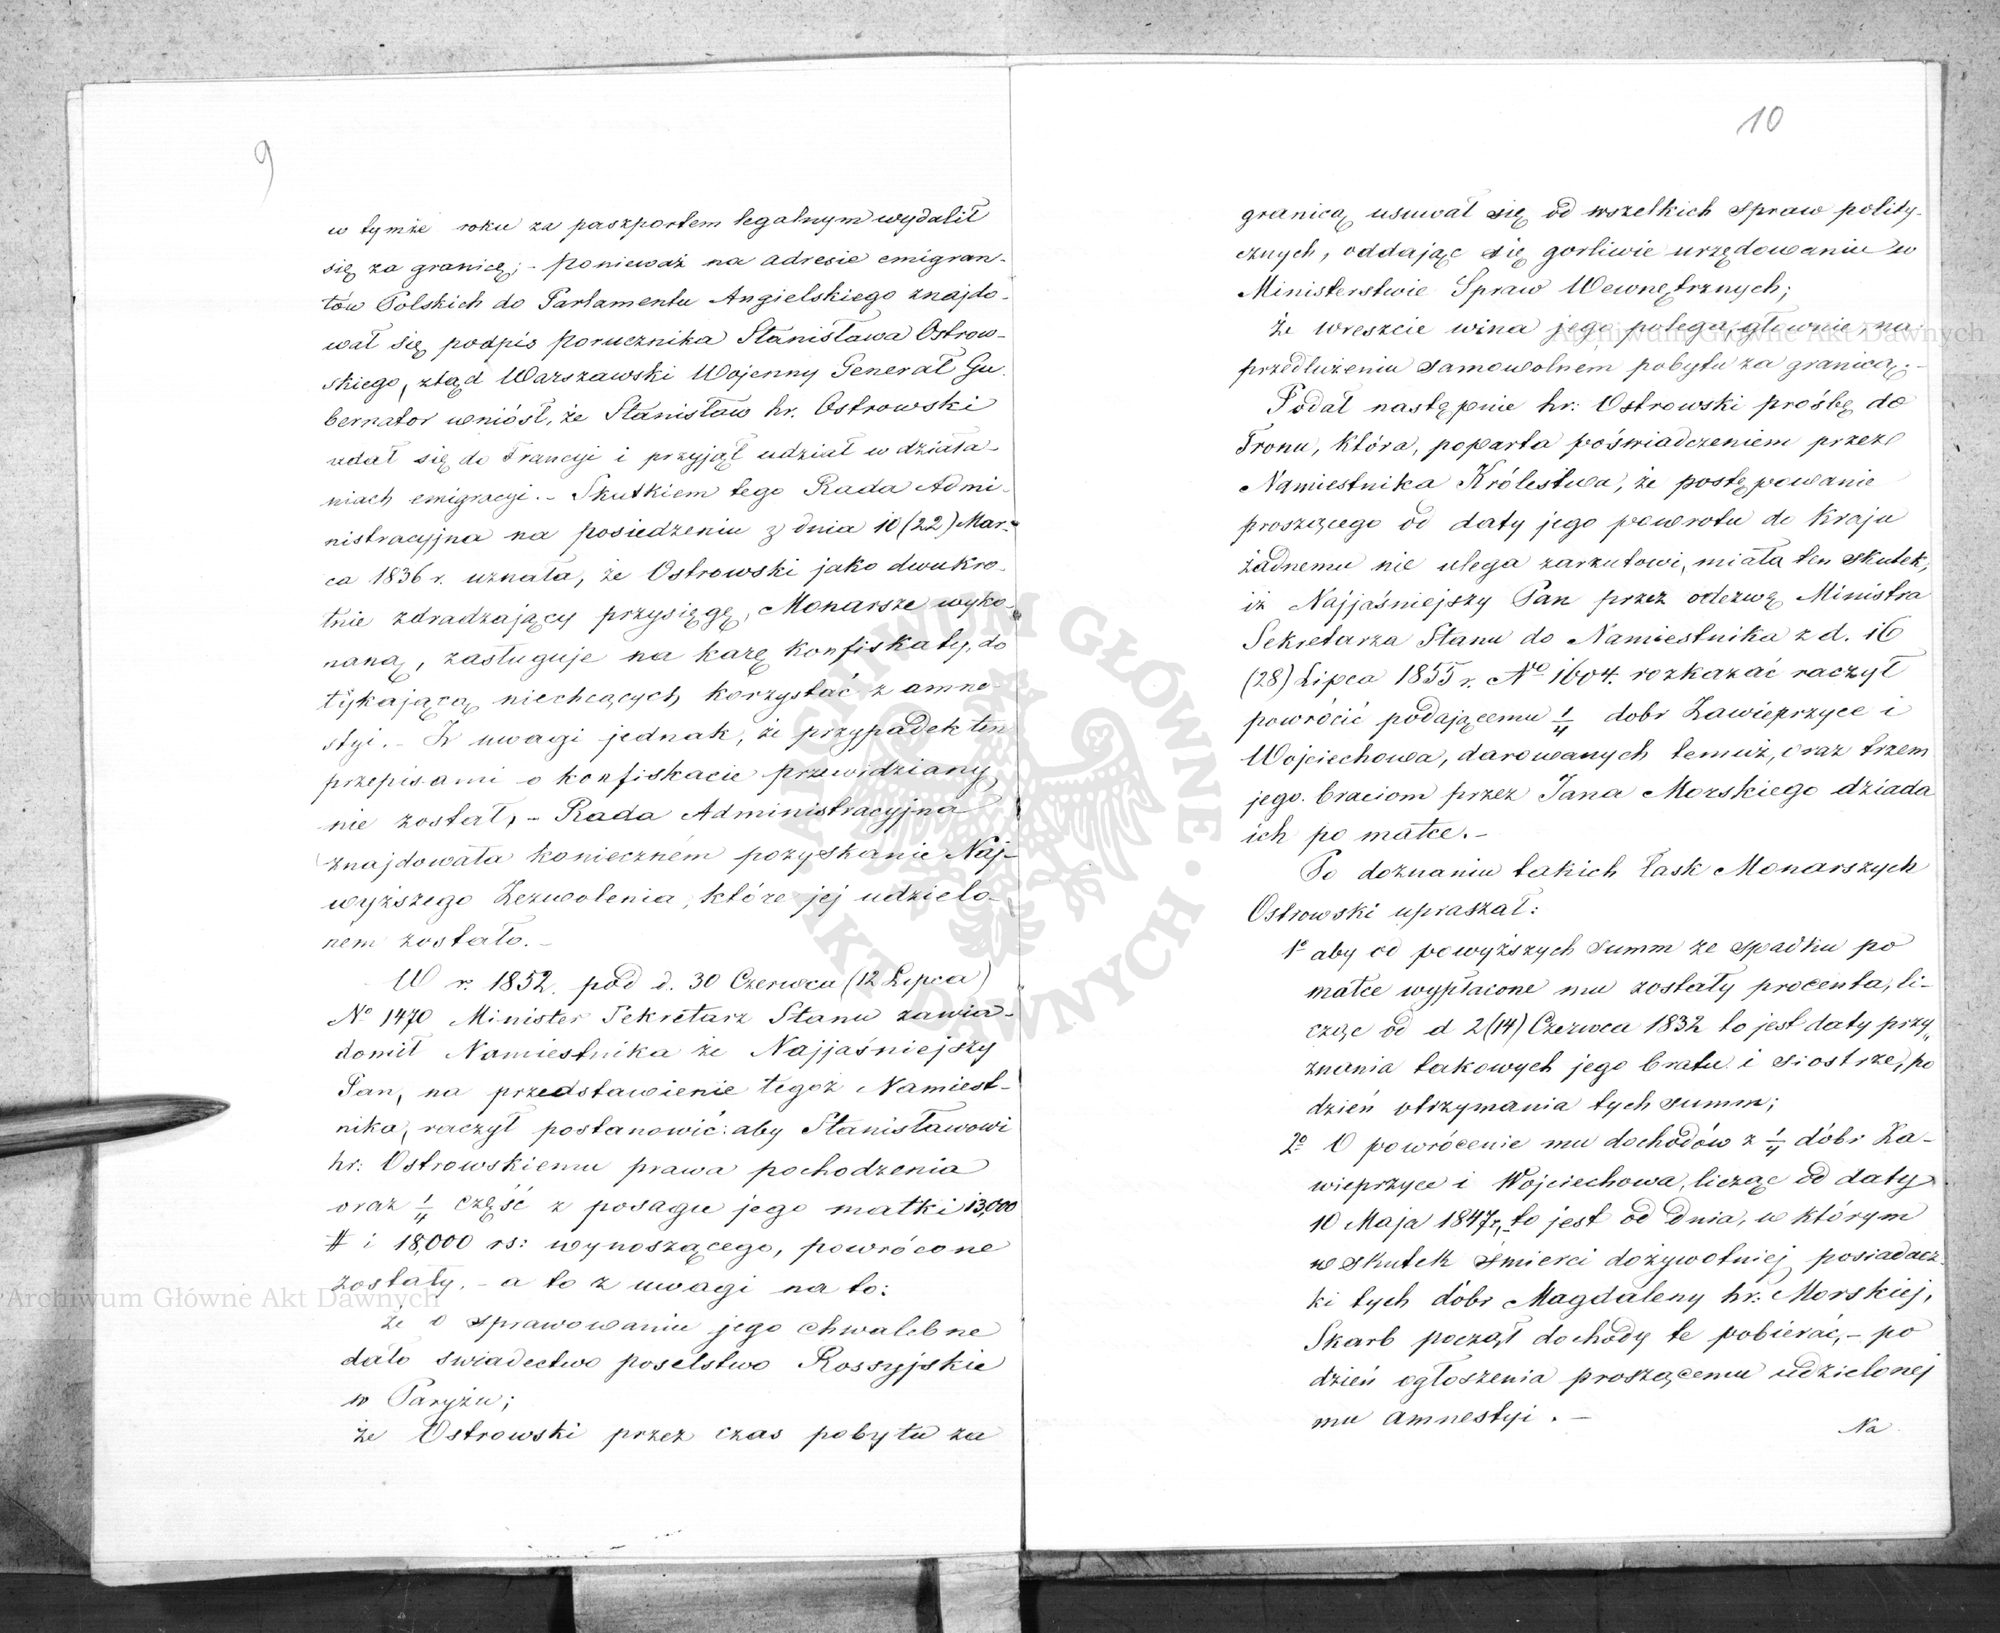 9
w tymże roku za paszportem legalnym wydalił
się za granicę; - ponieważ na adresie emigran-
tów Polskich do Parlamentu Angielskiego znajdo-
wał się podpis porucznika Stanisława Ostrow-
skiego, ztąd Warszawski Wojenny Generał Gu-
bernator wniósł, że Stanisław hr. Ostrowski
udał się do Francyi i przyjął udział w działa-
niach emigracyi. - Skutkiem tego Rada Admi-
nistracyjna na posiedzeniu z dnia 10 (22) Mar-
ca 1836 r. uznała, że Ostrowski jako dwukro-
tnie zdradzający przysięgę, Monarsze wyko-
naną, zasługuje na karę konfiskaty, do
tykającą niechcących korzystać z amne-
styi. - Z uwagi jednak, że przypadek ten
przepisami o konfiskacie przewidziany
nie został, - Rada Administracyjna
znajdowała konieczném pozyskanie Naj-
wyższego Zezwolenia, które jej udzielo-
ném zostało. -
W r. 1852. pod d. 30 Czerwca (12 Lipca)
No 1470 Minister Sekretarz Stanu zawia-
domił Namiestnika że Najjaśniejszy
Pan, na przedstawienie tegoż Namiest-
nika, raczył postanowić: aby Stanisławowi
hr: Ostrowskiemu prawa pochodzenia
oraz 1/4 część z posagu jego matki 13,000
# i 18,000 rs: wynoszącego, powrócone
zostały. - a to z uwagi na to:
że o sprawowaniu jego chwalebne
dało świadectwo poselstwo Rossyjskie
w Paryżu;
że Ostrowski przez czas pobytu za
10
granicą usuwał się od wszelkich spraw polity-
cznych, oddając się gorliwie urzędowaniu w
Ministerstwie Spraw Wewnętrznych;
że wreszcie wina jego polega głownie na
przedłużeniu samowolném pobytu za granicą. -
Podał następnie hr: Ostrowski prośbę do
Tronu, która, poparta poświadczeniem przez
Namiestnika Królestwa, że postępowanie
proszącego od daty jego powrotu do Kraju
żadnemu nie ulega zarzutowi, miała ten skutek,
iż Najjaśniejszy Pan przez odezwę Ministra
Sekretarza Stanu do Namiestnika z d. 16
(28) Lipca 1855 r. No 1604. rozkazać raczył
powrócić podającemu 1/4 dobr Zawieprzyce i
Wojciechowa, darowanych temuż, oraz trzem
jego braciom przez Jana Morskiego dziada
ich po matce. -
Po doznaniu takich Łask Monarszych
Ostrowski upraszał:
1o aby od powyższych summ ze spadku po
matce wypłacone mu zostały procenta, li-
cząc od d 2 (14) Czerwca 1832 to jest daty przy„
znania takowych jego bratu i siostrze, po
dzień otrzymania tych summ;
2o O powrócenie mu dochodów z 1/4 dóbr Za-
wieprzyce i Wojciechowa, licząc od daty
10 Maja 1847 r, to jest od dnia, w którym
w skutek śmierci dożywotniej posiadacz-
ki tych dóbr Magdaleny hr: Morskiej,
Skarb począł dochody te pobierać, - po
dzień ogłoszenia proszącemu udzielonej
mu amnestyi. -
Na
Archiwum Główne Akt Dawnych
Archiwum Główne Akt Dawnych
ARCHIWUM GŁÓWNE • AKT DAWNYCH •